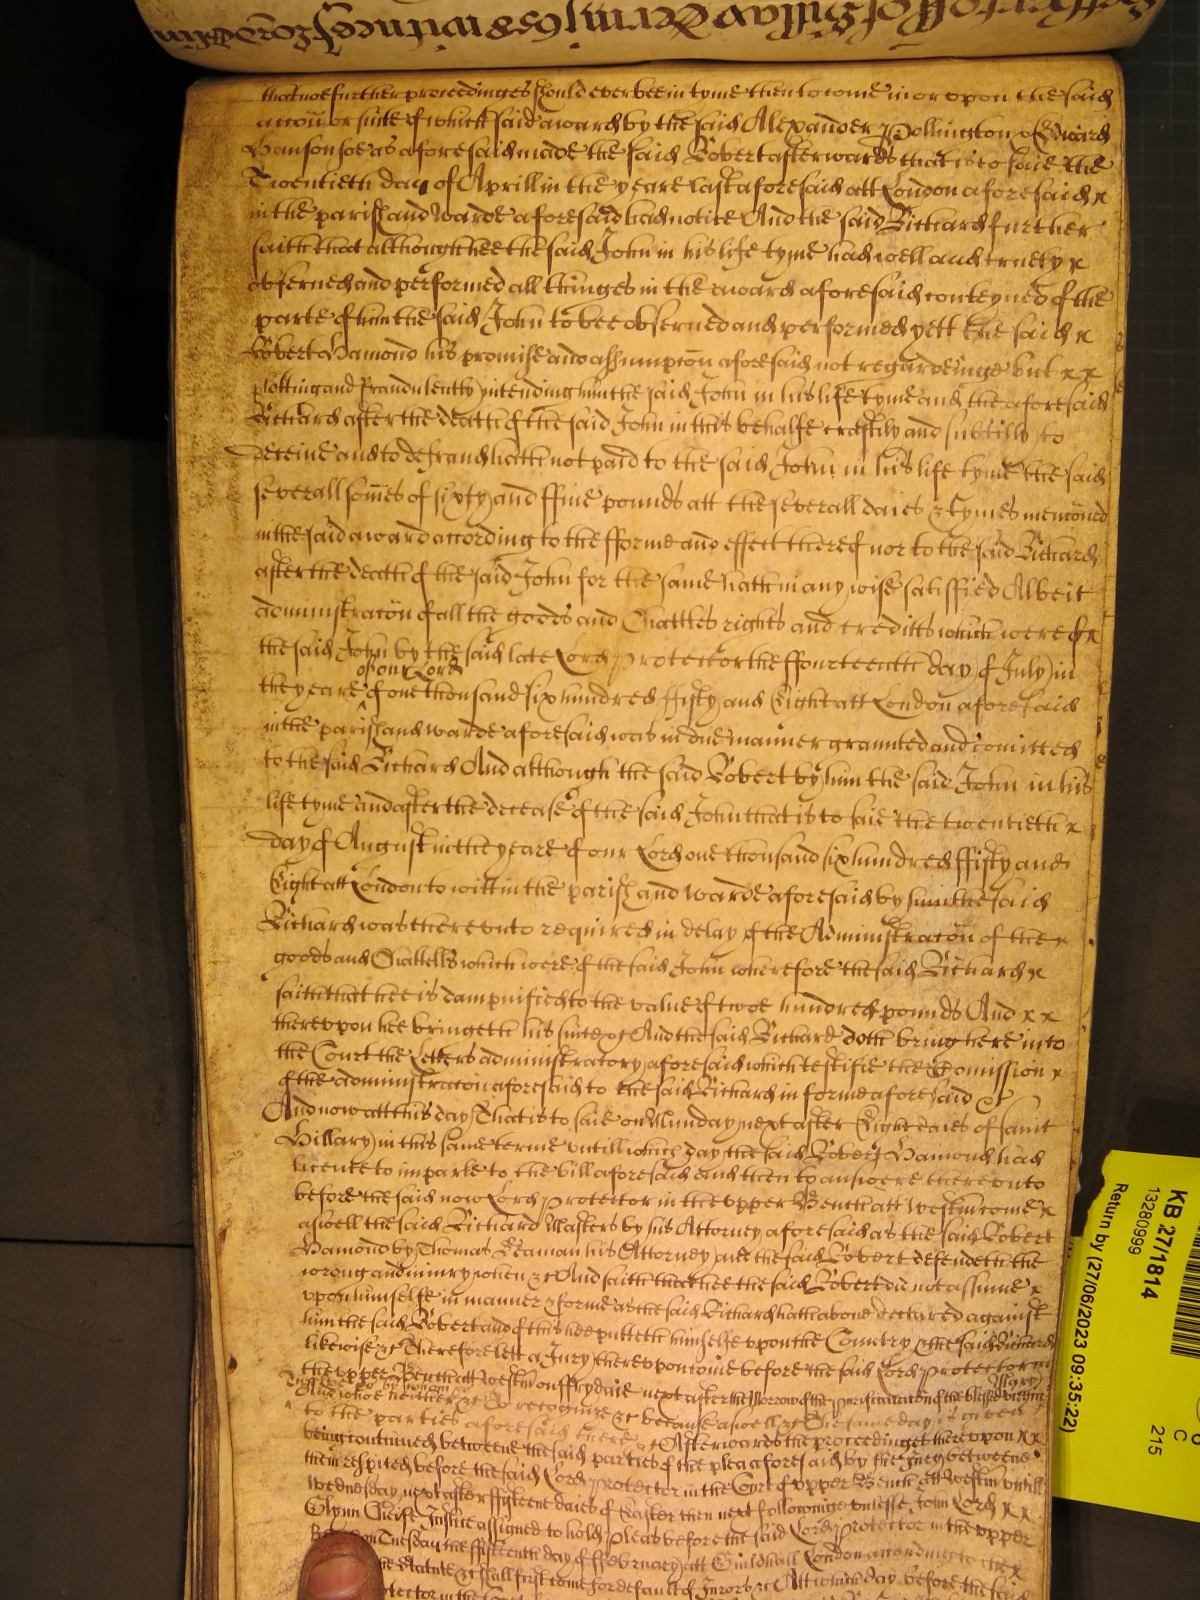 that noe further proceedinges should ever bee in tyme then to come in or upon the said
accon or suite of which said award by the said Alexander Pollington & Edward
Hanson soe as aforesaid made the said Robert afterwards that is to saie the
Twentieth day of Aprill in the yeare last aforesaid att London aforesaid x
in the parish and warde aforesaid had notice And the said Richard further
saith that although hee the said John in his life tyme had well and truely x
observed and performed all thinges in the award aforesaid conteyned of the
parte of him the said John to bee observed and performed yett the said x
Robert Hamond his promise and assumpcon aforesaid not regardeinge but x x
plotting and fraudulently intending him the said John in his life tyme and the aforesaid
Richard after the death of the said John in this behalfe craftily and subtilly to
deceive and to defraud hath not paid to the said John in his life tyme the said
severall somes of sixty and ffive pounds att the severall daies & tymes menconed
in the said award according to the fforme and effect thereof nor to the said Richard
after the death of the said John for the same hath in any wise satisfied Albeit
administracon of all the goods and Chattles rights and creditts which were of x
the said John by the said late Lord Protector the ffourteenth day of July in
the yeare of our Lord of one thousand six hundred ffifty and Eight att London aforesaid
in the parish and warde aforesaid was in due manner graunted and comitted
to the said Richard And although the said Robert by him the said John in his
life tyme and after the decease of the said John that is to saie the twentieth x
day of August in the yeare of our Lord one thousand six hundred ffifty and
Eight att London to witt in the parish and warde aforesaid by him the said
Richard was thereunto required in delay of the Administracon of the x
goods and Chattells which were of the said John wherefore the said Richard x
saith that hee is dampnified to the value of twoe hundred pounds And x x
thereupon hee bringeth his suite &c And the said Richard doth bring here into
the Court the Letters administratory aforesaid which testifie the Comission x
of the administracon aforesaid to the said Richard in forme aforesaid &c
And now att this day That is to saie on Munday next after Eight daies of saint
Hillary in this same terme untill which day the said Robert Hamond had
licence to imparle to the bill aforesaid and then to answere thereunto
before the said now Lord Protector in the upper Bench att Westm come x
aswell the said Richard Masters by his Attorney aforesaid as the said Robert
Hamond by Thomas Beaman his Attorney and the said Robert defendeth the
wrong and injury when &c And saith that hee the said Robert did not assume x
upon himselfe in manner & forme as the said Richard hath above declared against
him the said Robert and of this hee putteth himselfe upon the Country & the said Richard
likewise &c Therefore lett a Jury thereupon come before the said Lord Protector in
the upper Bench att Westm on ffryday next after the Morrow of the purificacon of the blessed virgin Mary
And who neither &c To recognize &c because aswell &c The same day is given
to the parties aforesaid there &c Afterwards the proceedings thereupon x x
being continued betweene the said parties of the plea aforesaid by the Jury betweene
them respited before the said Lord Protector in the Court of upper Bench att Westm untill
Wednesday next after ffifteene daies of Easter then next followinge unlesse John Lord x x
Glynn Cheife Justice assigned to hold Pleas before the said Lord Protector in the upper
Tuesday the ffifteenth day of ffebruary att Guildhall London according to the x
the Statute &c shall first come for default of Jurors &c Att which day before the said
KB 27/1814
13280999
Return by (27/06/2023 09:35:22)
C
215